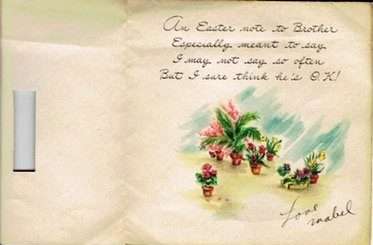 An Easter note to Brother
Especially meant to say
I may not say so often
But I sure think he's O.K!
Love
mabel